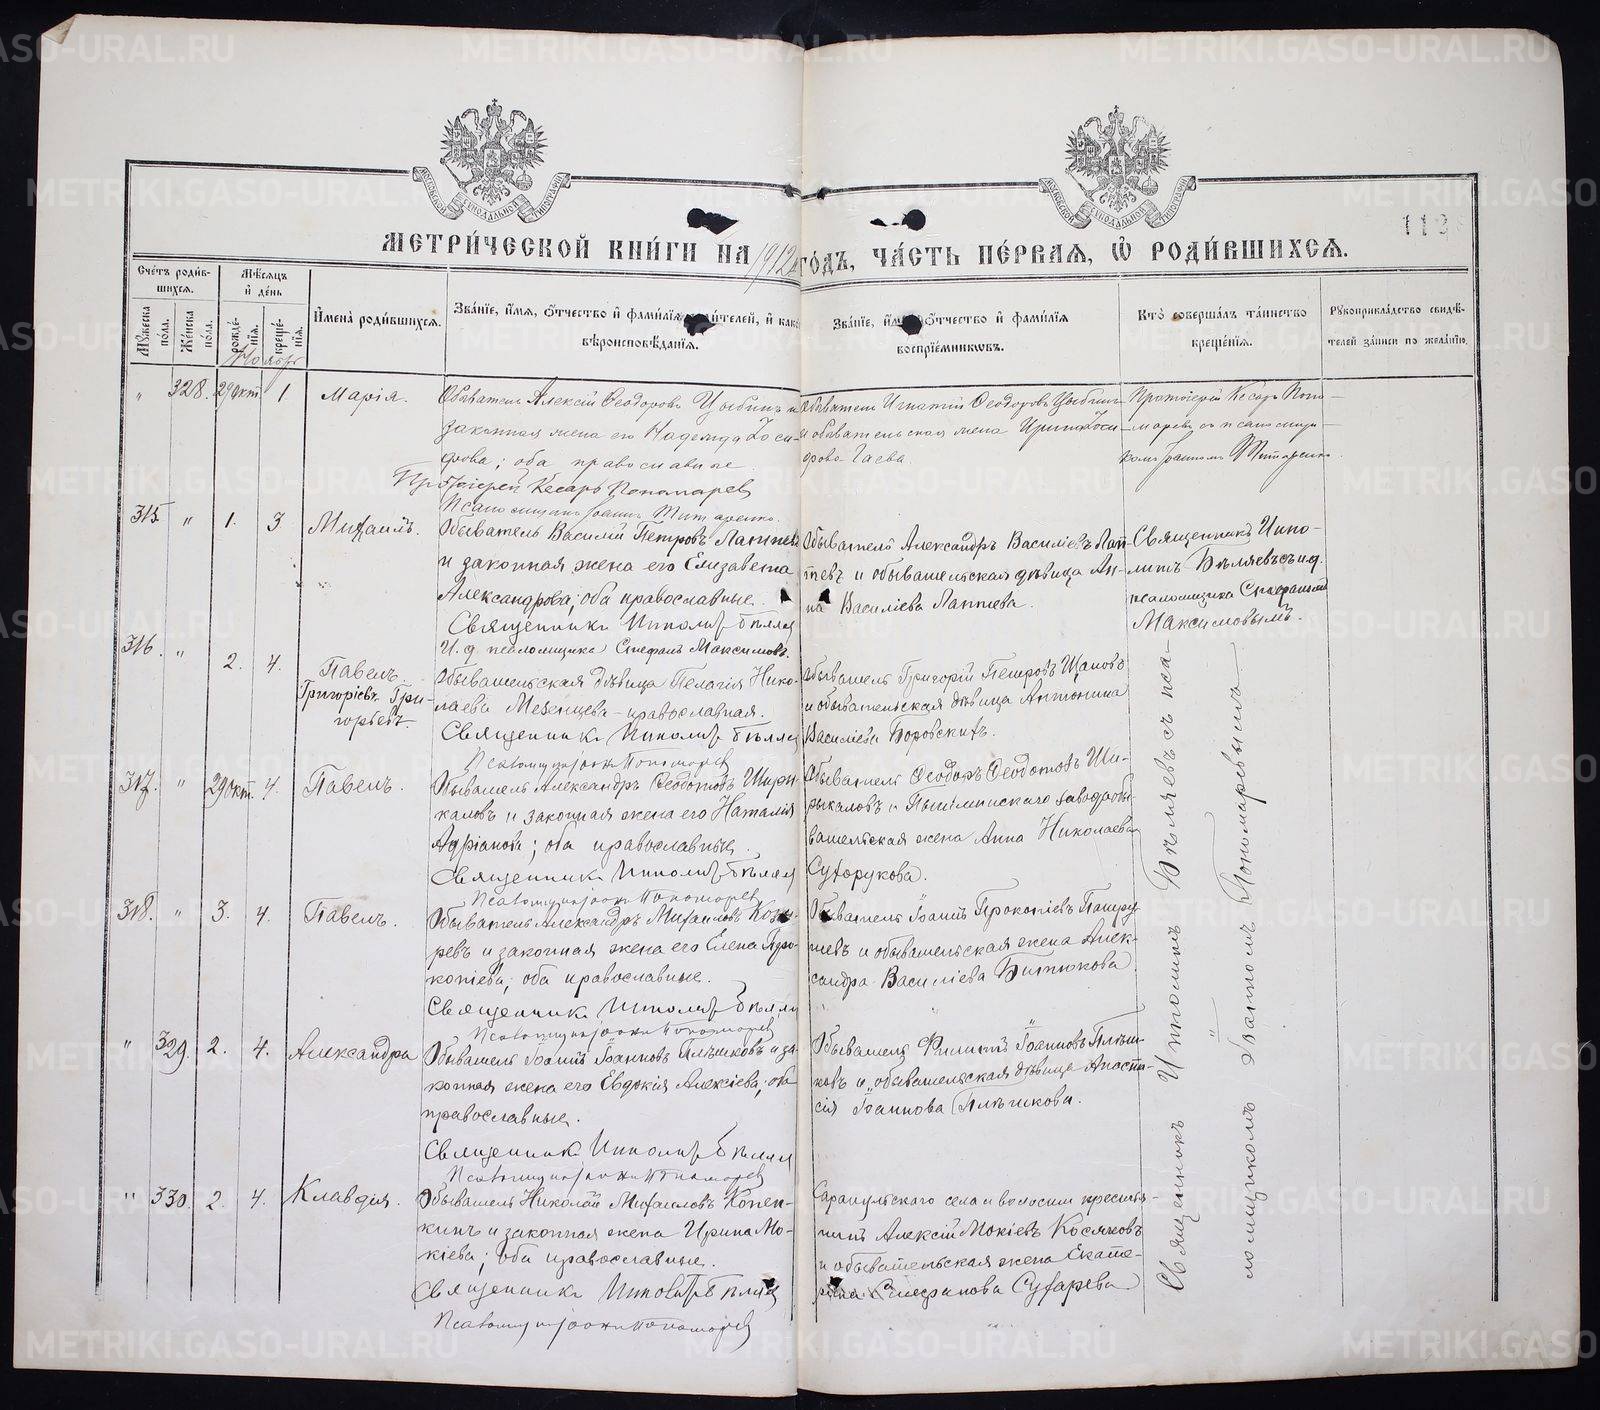 МЕТРИ́ЧЕСКОЙ КНИ́ГИ НА 1912 ГО́ДЪ, ЧА́СТЬ ПЕ́РВАЯ, Ѡ҆ РОДИ́ВШИХСѦ.
113
Сче́тъ роди́в-
шихсѧ.
Мꙋ́жеска
по́ла.
Же́нска
по́ла.
Мѣ́сѧцъ
и҆ де́нь
рожде́-
нїѧ.
креще́-
нїѧ.
Ноябрь
И҆мена̀ роди́вшихсѧ.
Зва́нїе, и҆́мѧ, ѻ҆́тчество и҆ фами́лїѧ роди́телей, и҆ како́
вѣроисповѣ́данїѧ.
Зва́нїе, и҆́мѧ, ѻ҆́тчество и҆ фами́лїѧ
воспрїе́мникѡвъ.
Кто̀ соверша́лъ та́инство
креще́нїѧ.
Рꙋкоприкла́дство свидѣ́-
телей за́писи по жела́нїю.
" 328. 29 окт. 1 Марія.
Обыватель Алексій Ѳеодоровъ Цыбинъ и
законная жена его Надежда Іоси-
фова; оба православные
Протоіерей Кесарь Пономаревъ
Псаломщикъ Іоаннъ Титаренко.
Обыватель Игнатій Ѳеодоровъ Цыбинъ
и обывательская жена Ирина Іоси-
фова Гаева.
Протоіерей Кесарь Поно-
маревъ съ псаломщи-
комъ Іоанномъ Титаренко
315. " 1. 3 Михаилъ.
Обыватель Василій Петровъ Лаптевъ
и законная жена его Елизавета
Александрова; оба православные.
Священникъ Иполитъ Бѣляевъ
И. д. псаломщика Стефанъ Максимовъ.
Обыватель Александръ Василіевъ Лап-
тевъ и обывательская дѣвица Ан-
на Василіева Лаптева.
Священникъ Ипо-
литъ Бѣляевъ съ и.д.
псаломщика Стефаномъ
Максимовымъ.
316. " 2. 4. Павелъ
Григоріевъ Гри-
горьевъ.
Обывательская дѣвица Пелагія Нико-
лаева Мезенцева - православная.
Священникъ Иполитъ Бѣляевъ
Псаломщикъ Іоаннъ Пономаревъ
Обыватель Григорій Петровъ Щаповъ
и обывательская дѣвица Антонина
Василіева Боровскихъ.
317. " 29 окт. 4. Павелъ.
Обыватель Александръ Ѳеодотовъ Ширы-
каловъ и законная жена его Наталія
Адріанова; оба православные.
Священникъ Иполитъ Бѣляевъ
Псаломщикъ Іоаннъ Пономаревъ
Обыватель Ѳеодоръ Ѳеодотовъ Ши-
рыкаловъ и Пышминскаго завода обы-
вательская жена Анна Николаева
Сухорукова.
318. " 3. 4. Павелъ.
Обыватель Александръ Михаиловъ Козы-
ревъ и законная жена его Елена Про-
копіева; оба православные.
Священникъ Иполитъ Бѣляевъ
Псаломщикъ Іоаннъ Пономаревъ
Обыватель Іоаннъ Прокопіевъ Патру-
шевъ и обывательская жена Алек-
сандра Василіева Битюкова
" 329. 2. 4. Александра
Обыватель Іоаннъ Іоанновъ Плѣшковъ и за-
конная жена его Евдокія Алексіева; оба
православные.
Священникъ Иполитъ Бѣляевъ
Псаломщикъ Іоаннъ Пономаревъ
Обыватель Филиппъ Іоанновъ Плѣш-
ковъ и обывательская дѣвица Анаста-
сія Іоаннова Плѣшкова.
" 330. 2. 4. Клавдія.
Обыватель Николай Михаиловъ Копен-
кинъ и законная жена Ирина Мо-
кіева; оба православные.
Священникъ Иполитъ Бѣляевъ
Псаломщикъ Іоаннъ Пономаревъ
Сарапульскаго села и волости крестья-
нинъ Алексій Мокіевъ Косяковъ
и обывательская жена Екате-
рина Стефанова Сухарева
Священникъ Иполитъ Бѣляевъ съ пса-
ломщикомъ Іоанномъ Пономаревымъ
METRIKI.GASO-URAL.RU